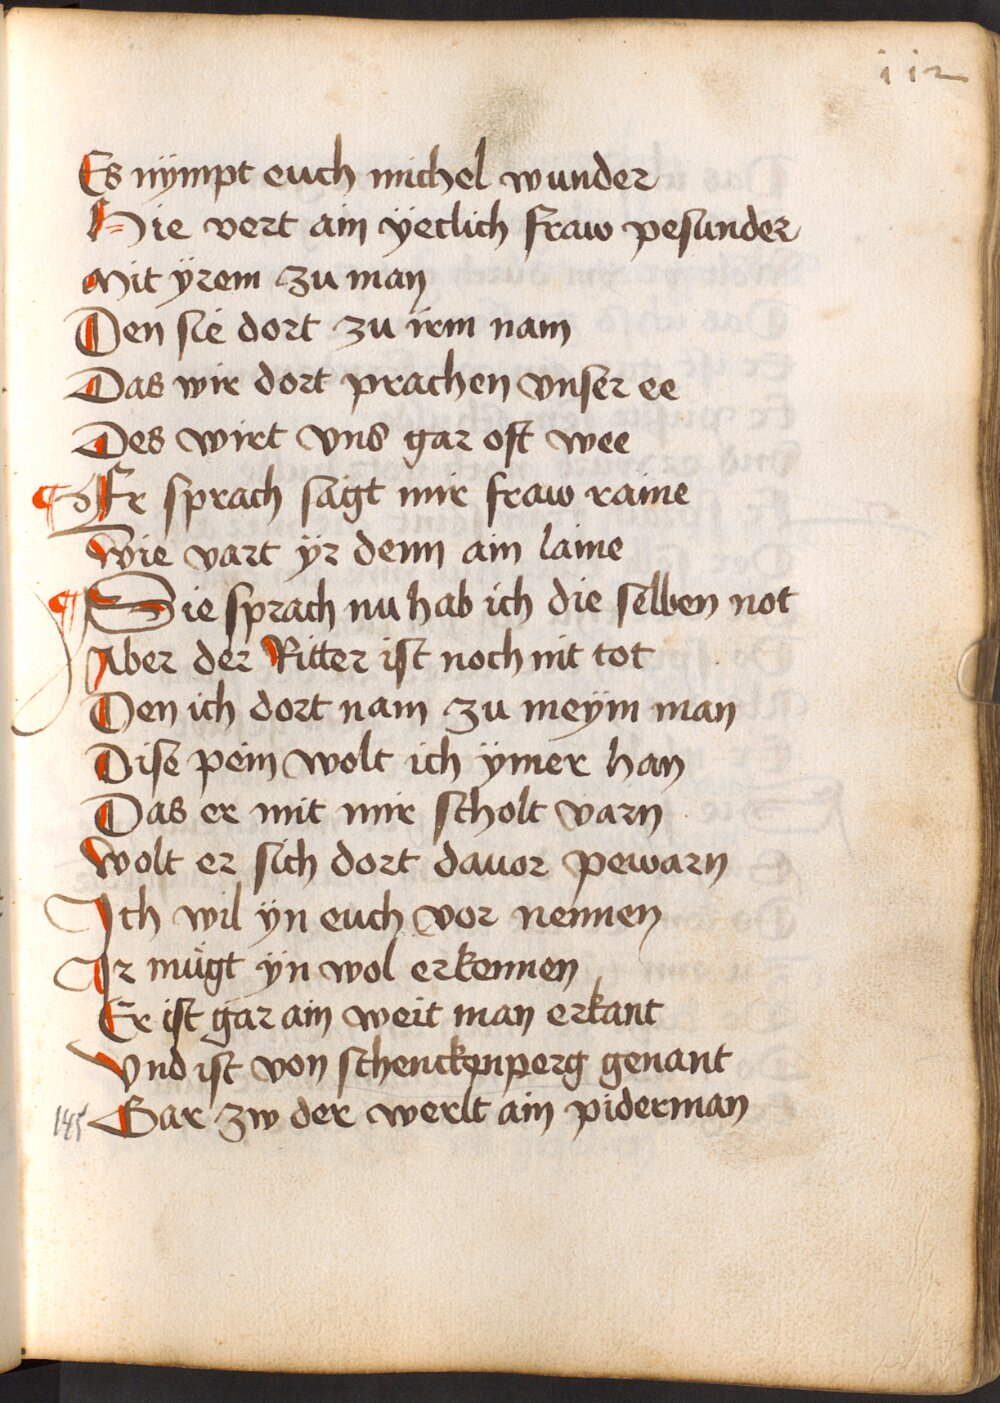 112
Es nÿmpt euch michel wunder
Hie vert ain ÿetlich fraw pesunder
Mit ÿrem zu man
Den sie dort zu irm nam
Das wir dort prachen vnser ee
Des wirt vns gar oft wee
¶ Er sprach sagt mir fraw raine
Wie vart ÿr denn ain laine
¶ Sie sprach nu hab ich die selben not
Aber der Ritter ist noch nit tot
Den ich dort nam zu meÿm man
Dise pein wolt ich ÿmer han
Das er mit mir scholt varn
Wolt er sich dort dauor pewarn
Ich wil ÿn euch vor nennen
Ir mügt ÿn wol erkennen
Er ist gar ain weit man erkant
Vnd ist von schenckenperg genant
145 Gar zw der werlt ain piderman